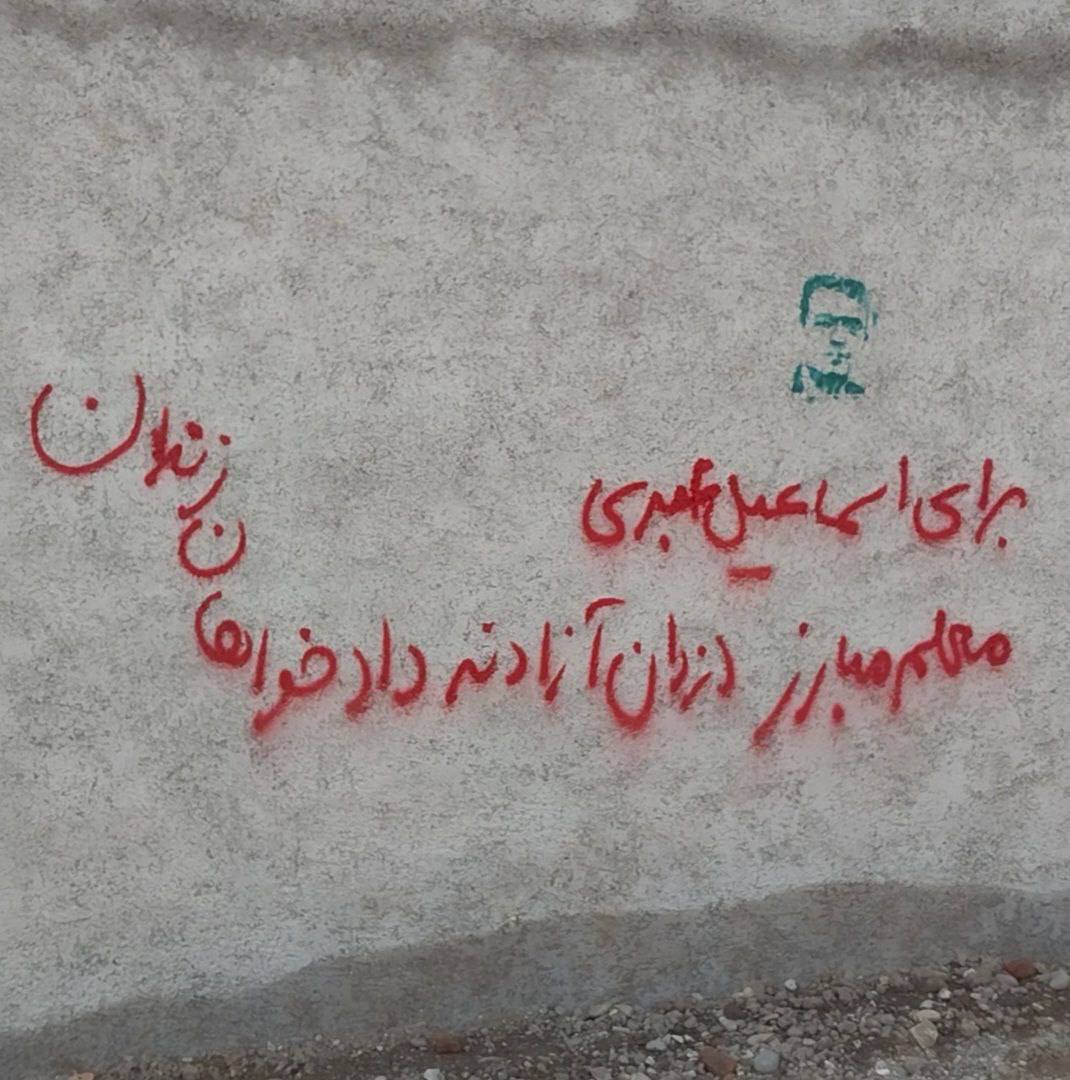 برای اسماعیل عبدی
معلم مبارز دزدان آزادند دادخواهان
زندان